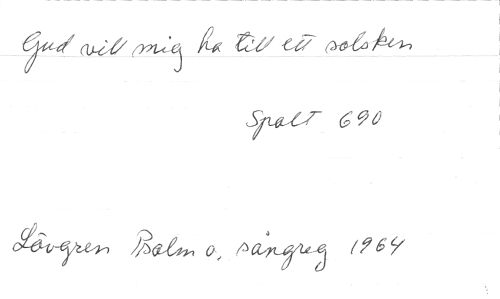 Gud vill mig ha till ett solsken
Spalt 690
Lövgren Psalm o. sångreg 1964